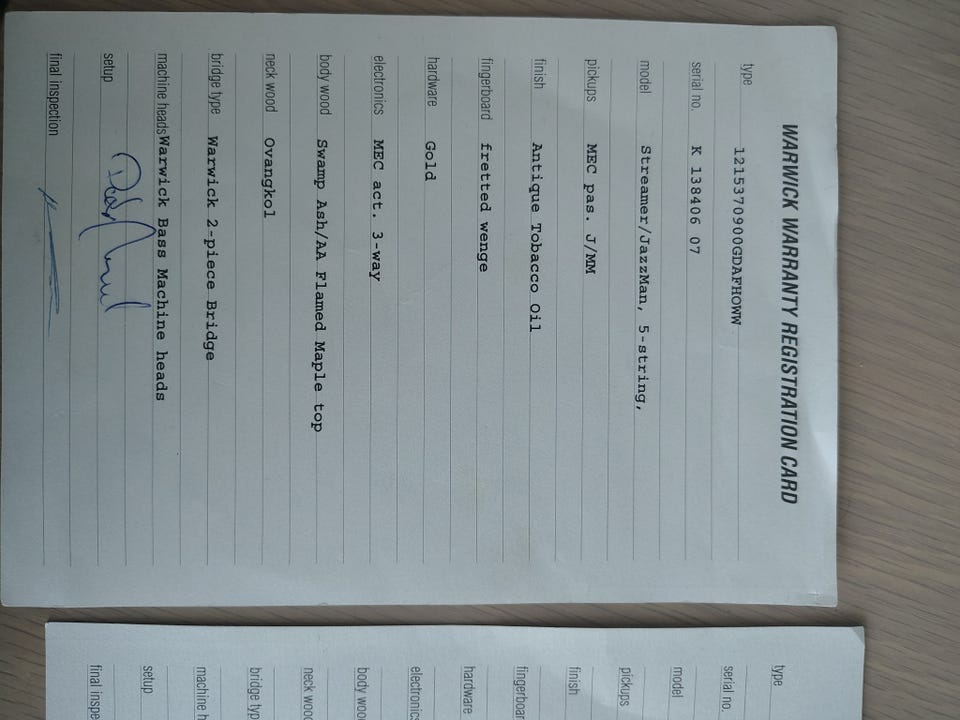 WARWICK WARRANTY REGISTRATION CARD
type 1215370900GDAFHOWW
serial no. K 138406 07
model Streamer/JazzMan, 5-string,
pickups MEC pas. J/MM
finish Antique Tobacco Oil
fingerboard fretted wenge
hardware Gold
electronics MEC act. 3-way
body wood Swamp Ash/AA Flamed Maple top
neck wood Ovangkol
bridge type Warwick 2-piece Bridge
machine heads Warwick Bass Machine heads
setup
final inspection
type
serial no.
model
pickups
finish
fingerboar
hardware
electronics
body wood
neck wood
bridge typ
machine h
setup
final inspe